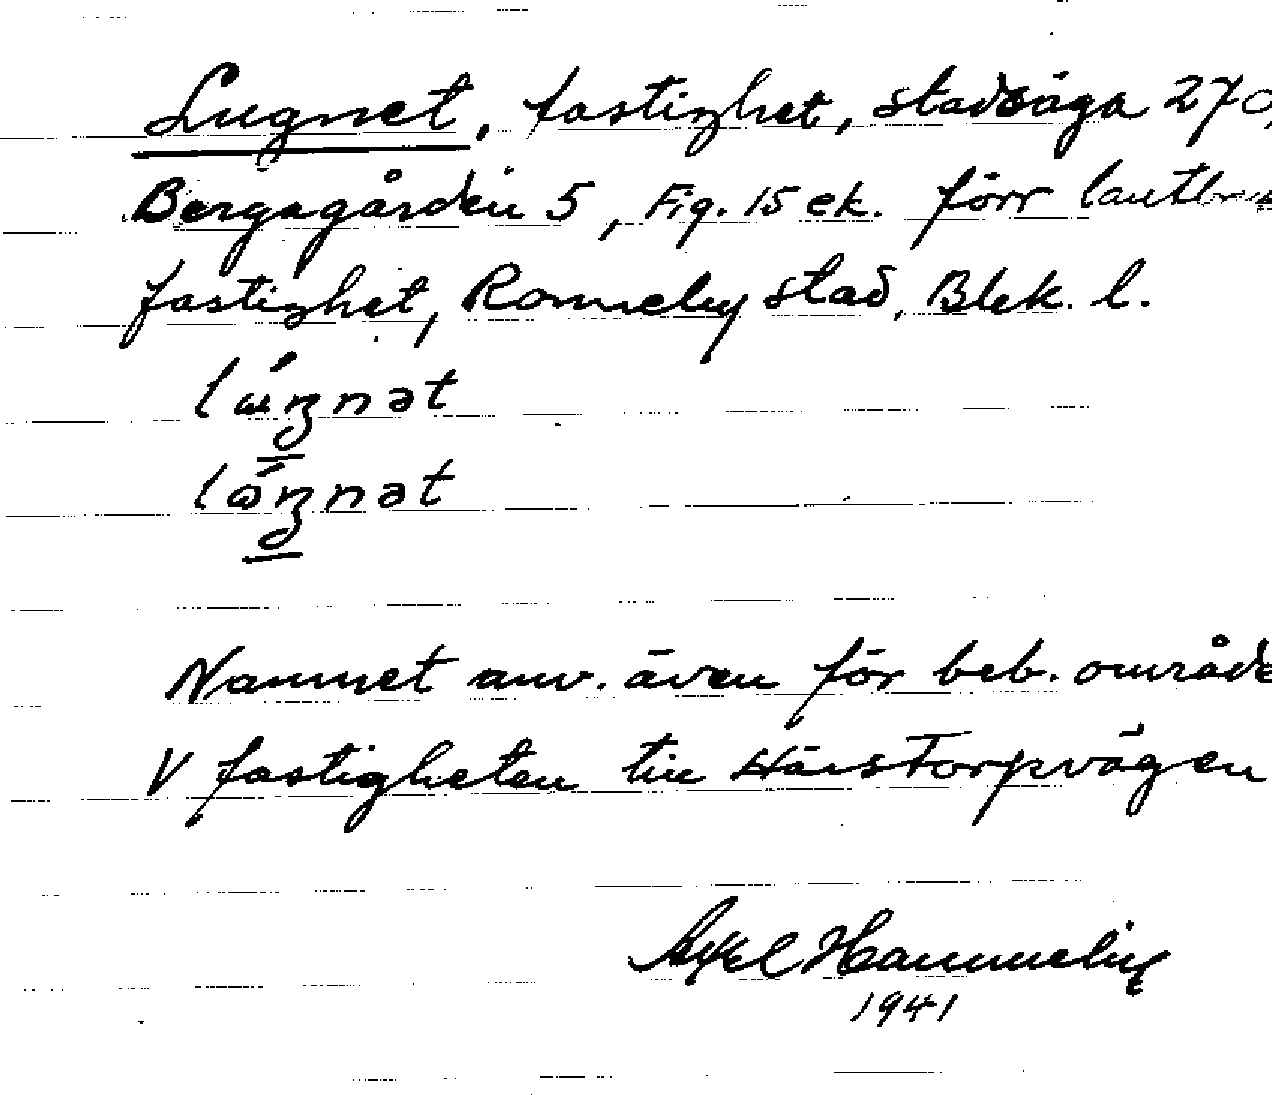 Lugnet, fastighet, stadsäga 270,
Bergagården 5, Fig. 15 ek. förr lantbr
fastighet, Ronneby stad, Blek. l.
nət
nət
Namnet anv. även för beb. område
V fastigheten till Härstorpvägen
Axel Hammelin
1941